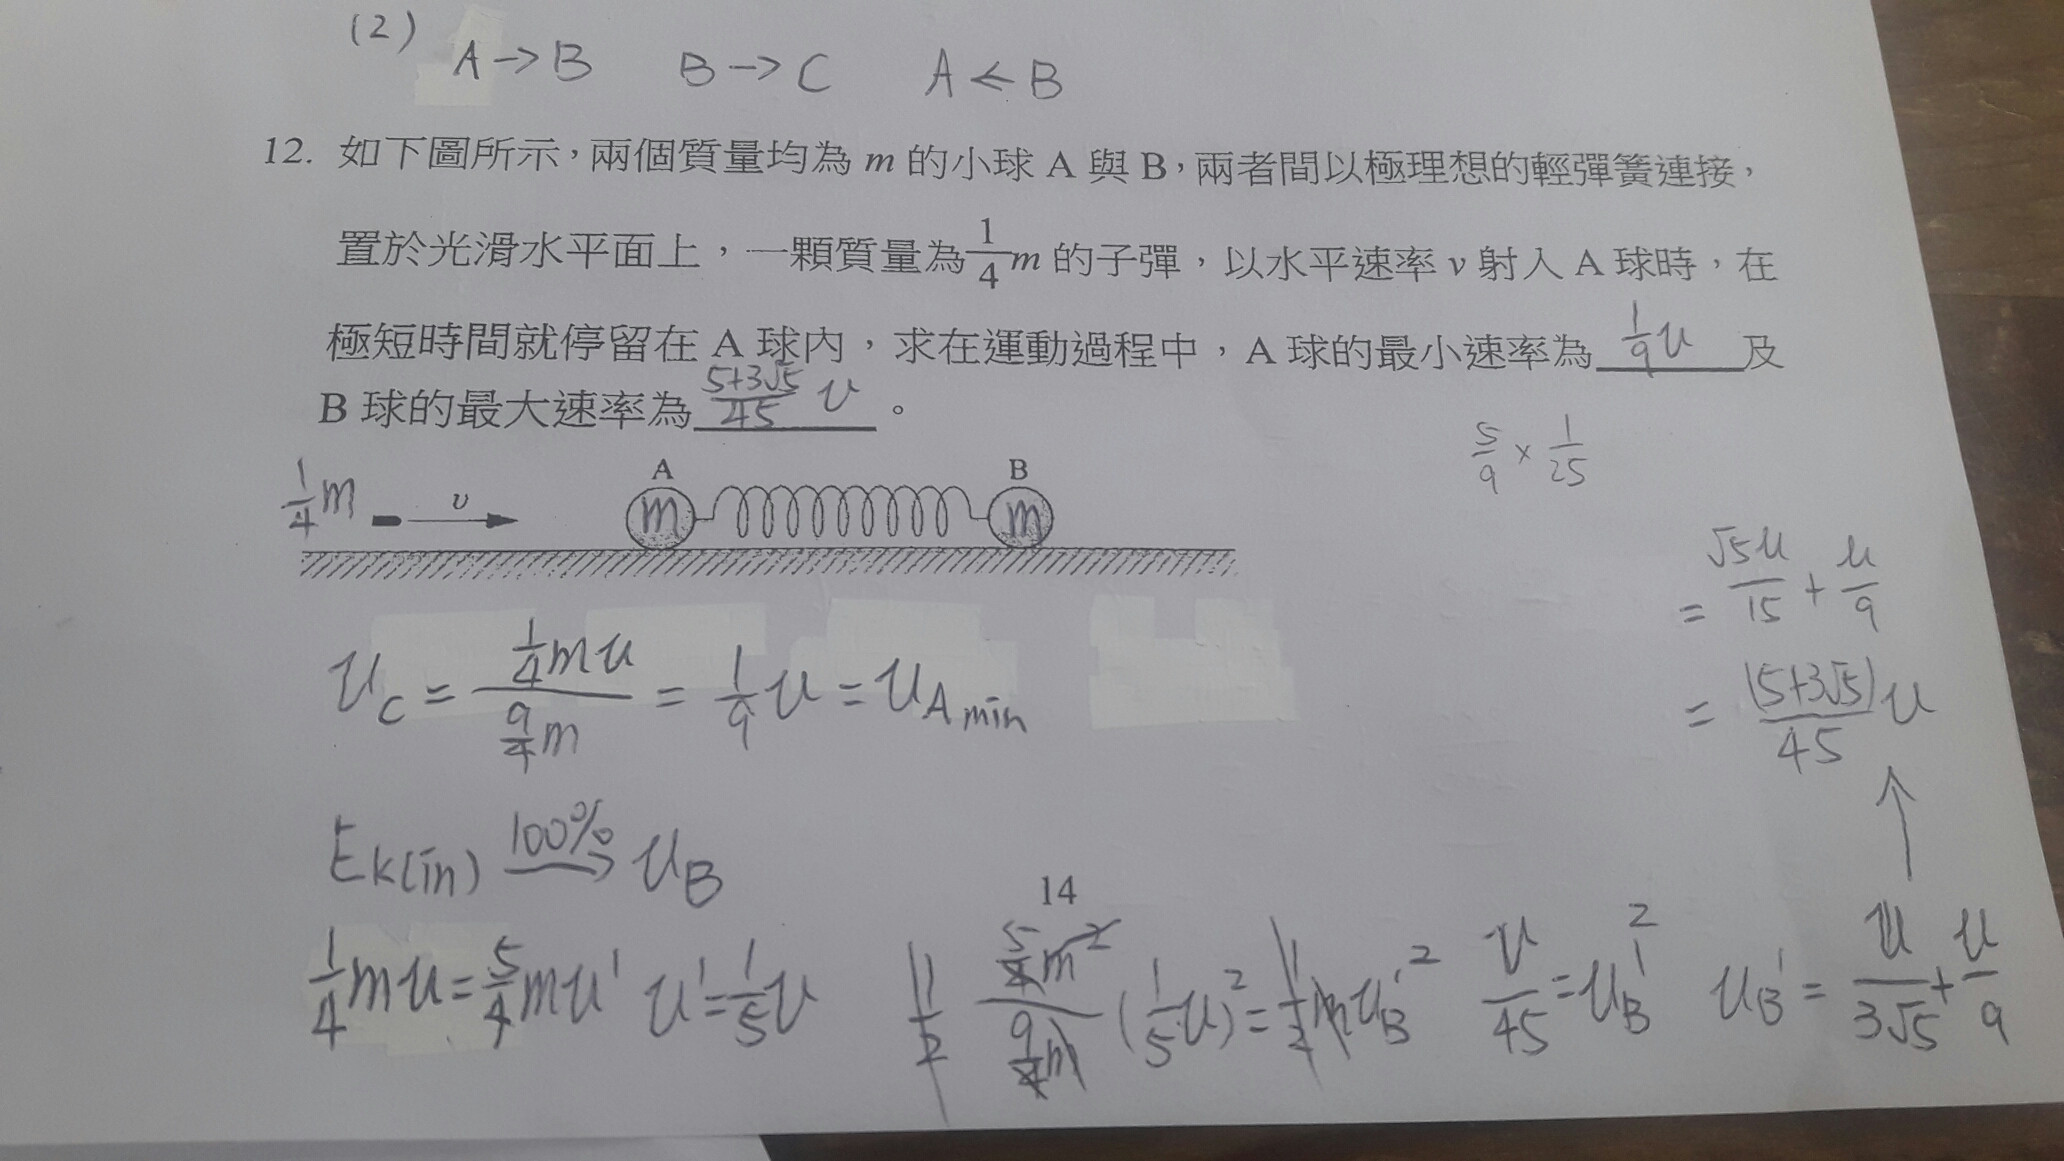 (2) A→B B→C A←B
12. 如下圖所示，兩個質量均為 m 的小球 A 與 B，兩者間以極理想的輕彈簧連接，
置於光滑水平面上，一顆質量為 1/4 m 的子彈，以水平速率 v 射入 A 球時，在
極短時間就停留在 A 球內，求在運動過程中，A 球的最小速率為 1/9 v 及
B 球的最大速率為 (5+3√5)/45 v 。
5/9 × 1/25
1/4 m v A m B m
= √5v/15 + v/9
= (5+3√5)/45 v
v_C = (1/4 mv)/(9/4 m) = 1/9 v = v_A min
E_k(in) 100%→ v_B
14
1/4 mv = 5/4 mv' v' = 1/5 v 1/2 (5/4 m²)/(9/4 m) (1/5 v)² = 1/2 m v_B'² v²/45 = v_B'² v_B' = v/(3√5) + v/9